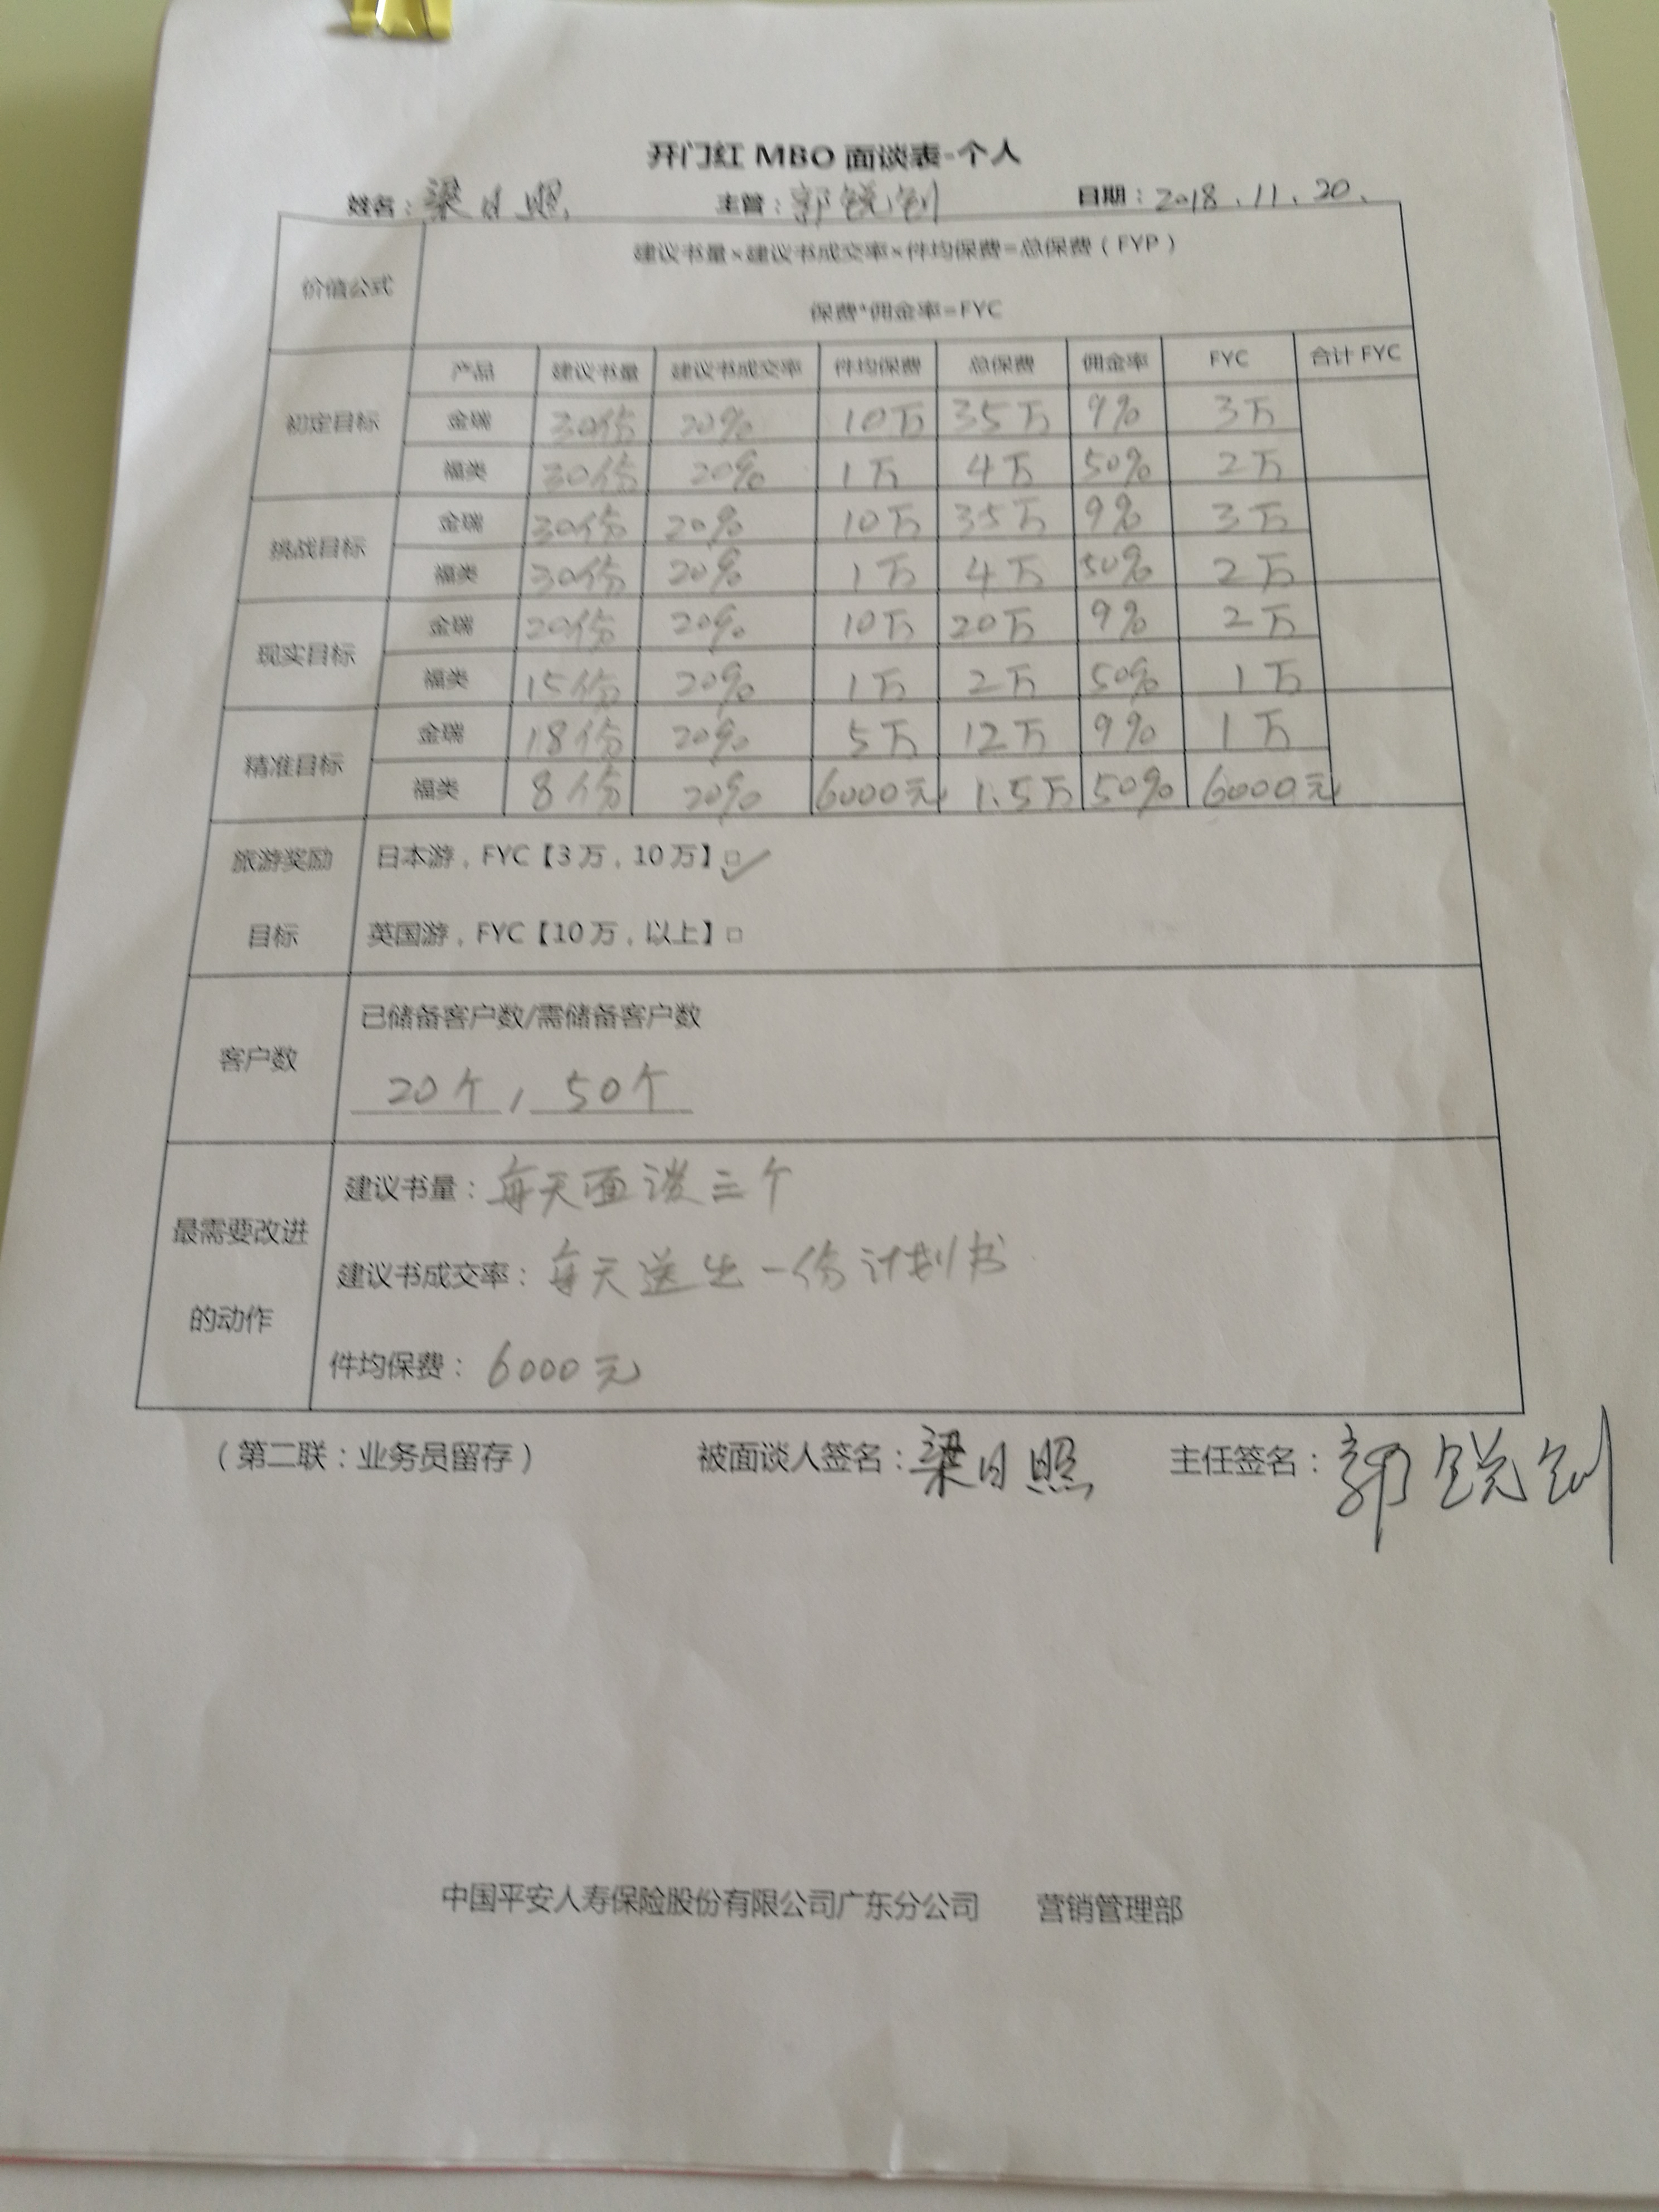 开门红 MBO 面谈表-个人
姓名：梁日照 主管：郭锐钊 日期：2018.11.20.
价值公式
建议书量×建议书成交率×件均保费=总保费（FYP）
保费*佣金率=FYC
产品 建议书量 建议书成交率 件均保费 总保费 佣金率 FYC 合计 FYC
初定目标
金瑞 30份 20% 10万 35万 9% 3万
福类 30份 20% 1万 4万 50% 2万
挑战目标
金瑞 30份 20% 10万 35万 9% 3万
福类 30份 20% 1万 4万 50% 2万
现实目标
金瑞 20份 20% 10万 20万 9% 2万
福类 15份 20% 1万 2万 50% 1万
精准目标
金瑞 18份 20% 5万 12万 9% 1万
福类 8份 20% 6000元 1.5万 50% 6000元
旅游奖励
目标
日本游，FYC【3万，10万】□✓
英国游，FYC【10万，以上】□
客户数
已储备客户数/需储备客户数
20个 / 50个
最需要改进
的动作
建议书量：每天面谈三个
建议书成交率：每天送出一份计划书
件均保费：6000元
（第二联：业务员留存） 被面谈人签名：梁日照 主任签名：郭锐钊
中国平安人寿保险股份有限公司广东分公司 营销管理部